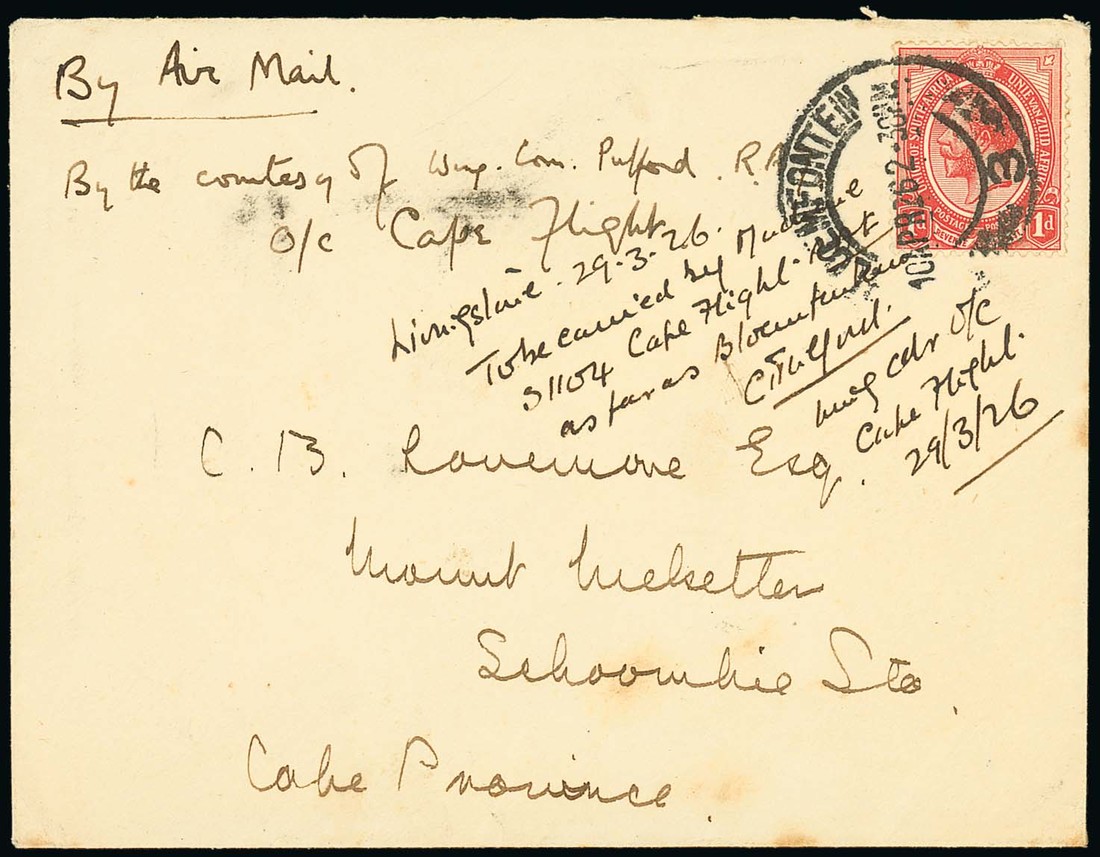 By Air Mail.
By the courtesy of Wing. Com. Pulford. R.A
O/C Cape Flight
Livingstone - 29.3.26.
To be carried by Machine
S1104 Cape Flight. R
as far as Bloemfontein
C T Pulford.
Wing Cdr O/C
Cape Flight.
29/3/26
C. B. Lovemore Esq.
Mount Melsetter
Schoombie Sta.
Cape Province
BLOEMFONTEIN
10 APR 26 2-30PM
3
OF SOUTH AFRICA
UNIE VAN ZUID AFRIKA
POSTAGE
1d
1d